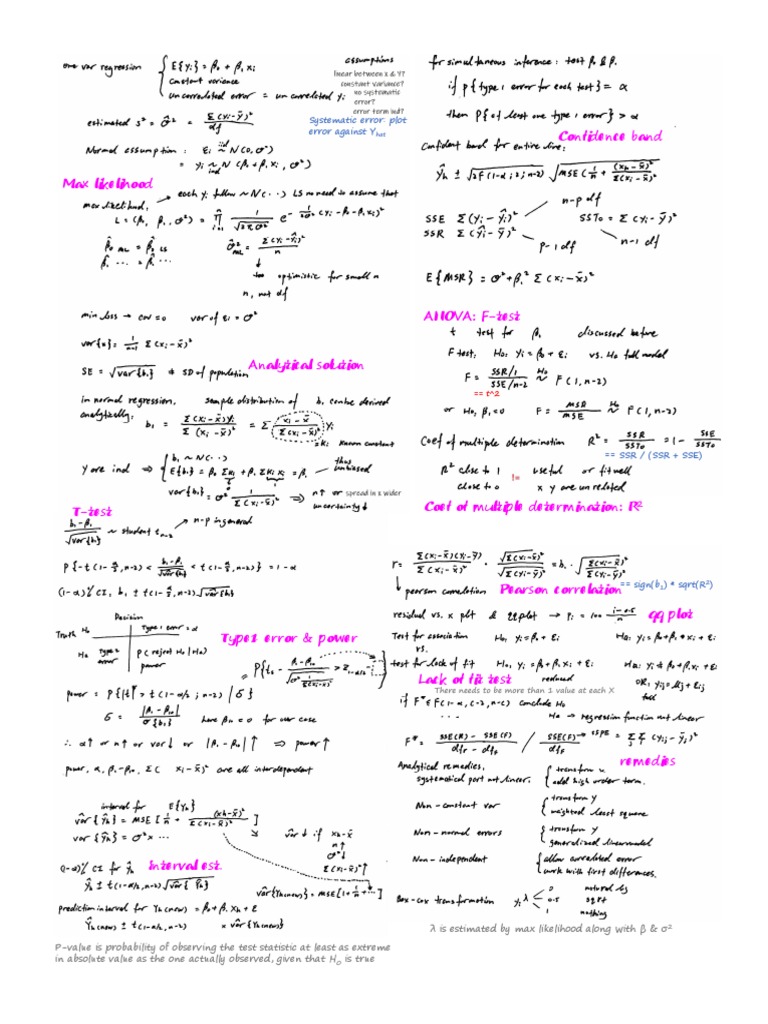 one var regression { E{yᵢ} = β₀ + β₁xᵢ
constant variance
uncorrelated error = uncorrelated yᵢ
assumptions
linear between x & Y?
constant variance?
no systematic
error?
error term ind?
Systematic error: plot
error against Y_hat
estimated s² = σ̂² = Σ(yᵢ-ȳ)² / df
Normal assumption: εᵢ ~ind N(0, σ²)
= yᵢ ~ind N(β₀ + β₁xᵢ, σ²)
Max likelihood
each yᵢ follow ~ N(··) LS no need to assume that
max likelihood,
L = (β₀, β₁, σ²) = Π 1/√(2πσ²) e^(-1/(2σ²) (yᵢ-β₀-β₁xᵢ)²)
β̂₀ ML = β̂₀ LS
β̂₁ ··· = β̂₁ ···
σ̂²ML = Σ(yᵢ-ŷᵢ)² / n
too optimistic for small n
n, not df
min loss → cov = 0 var of εᵢ = σ²
var{x} = 1/(n-1) Σ(xᵢ-x̄)²
SE = √var{b₁} ≠ SD of population
Analytical solution
in normal regression, sample distribution of b₁ can be derived
analytically:
b₁ = Σ(xᵢ-x̄)yᵢ / Σ(xᵢ-x̄)² = Σ (xᵢ-x̄)/Σ(xᵢ-x̄)² yᵢ
= kᵢ known constant
y are ind ⇒ { b₁ ~ N(··)
E{b₁} = β₀Σkᵢ + β₁Σkᵢxᵢ = β₁
thus
unbiased
var{b₁} = σ² 1/Σ(xᵢ-x̄)² ⇒ n↑ or spread in x wider
uncertainty↓
T-test
(b₁-β₁)/√var{b₁} ~ student t n-2
n-p in general
P{-t(1-α/2, n-2) < (b₁-β₁)/√var{b₁} < t(1-α/2, n-2)} = 1-α
(1-α)% CI, b₁ ± t(1-α/2, n-2)√var{b₁}
Decision
Truth H₀ Type 1 error = α
Ha Type 2 error P(reject H₀|Ha)
power
Type1 error & power
power = P{|t*| > t(1-α/2; n-2) | δ}
δ = |β₁-β₁₀| / σ{b₁} here β₁₀ = 0 for our case
∴ α↑ or n↑ or var↓ or |β₁-β₁₀|↑ ⇒ power↑
power, α, β₁-β₁₀, Σ(xᵢ-x̄)² are all interdependent
interval for E{Yh}
var{ŷh} = MSE[1/n + (xh-x̄)²/Σ(xᵢ-x̄)²]
var{ŷh} = σ² × ···
var↓ if xh-x̄
n↑
σ²↓
Σ(xᵢ-x̄)²↑
(1-α)% CI for ŷh
Interval est.
ŷh ± t(1-α/2, n-2)√var{ŷh}
var{Yh(new)} = MSE[1+1/n+···]
prediction interval for Yh(new) = β₀ + β₁xh + ε
Ŷh(new) ± t(1-α/2, n-2) × var{Yh(new)}
P-value is probability of observing the test statistic at least as extreme
in absolute value as the one actually observed, given that H₀ is true
for simultaneous inference: test β₀ & β₁
if p{type 1 error for each test} = α
then P{at least one type 1 error} > α
Confidence band
Confident band for entire line:
ŷh ± √2F(1-α; 2; n-2) √MSE(1/n + (xh-x̄)²/Σ(xᵢ-x̄)²)
n-p df
SSE Σ(yᵢ-ŷᵢ)² SSTo = Σ(yᵢ-ȳ)²
SSR Σ(ŷᵢ-ȳ)²
p-1 df n-1 df
E{MSR} = σ² + β₁²Σ(xᵢ-x̄)²
ANOVA: F-test
t test for β₁ discussed before
F test, H₀: yᵢ = β₀ + εᵢ vs. Ha full model
F = (SSR/1)/(SSE/n-2) ~H₀ F(1, n-2)
== t^2
or H₀, β₁ = 0 F = MSR/MSE ~H₀ F(1, n-2)
Coef of multiple determination R² = SSR/SSTo = 1 - SSE/SSTo
== SSR / (SSR + SSE)
R² close to 1 != useful or fit well
close to 0 x y are unrelated
Coef of multiple determination: R²
r = Σ(xᵢ-x̄)(yᵢ-ȳ)/Σ(xᵢ-x̄)² · √Σ(xᵢ-x̄)²/√Σ(yᵢ-ȳ)² = b₁ · √(Σ(xᵢ-x̄)²/Σ(yᵢ-ȳ)²)
pearson correlation
Pearson correlation
== sign(b₁) * sqrt(R²)
residual vs. x plt & QQ plot → pᵢ = 100 (i-0.5)/n
qq plot
Test for association H₀, yᵢ = β₀ + εᵢ Ha: yᵢ = β₀ + β₁ * xᵢ + εᵢ
vs.
test for lack of fit H₀, yᵢ = β₀ + β₁xᵢ + εᵢ Ha: yᵢ ≠ β₀ + β₁xᵢ + εᵢ
reduced OR: yᵢⱼ = μⱼ + εᵢⱼ
full
Lack of fit test
There needs to be more than 1 value at each X
if F* ≤ F(1-α, c-2, n-c) conclude H₀
··· Ha → regression function not linear
F* = (SSE(R) - SSE(F))/(dfR - dfF) / SSE(F)/dfF → SSPE = ΣΣ(yᵢⱼ-ȳⱼ)²
remedies
Analytical remedies,
systematical part not linear, { transform x.
add high order term.
Non-constant var { transform y
weighted least square
Non-normal errors { transform y
generalized linear model
Non-independent { allow correlated error
work with first differences.
Box-cox transformation yᵢ^λ 0 natural log
0.5 sqrt
1 nothing
λ is estimated by max likelihood along with β & σ²